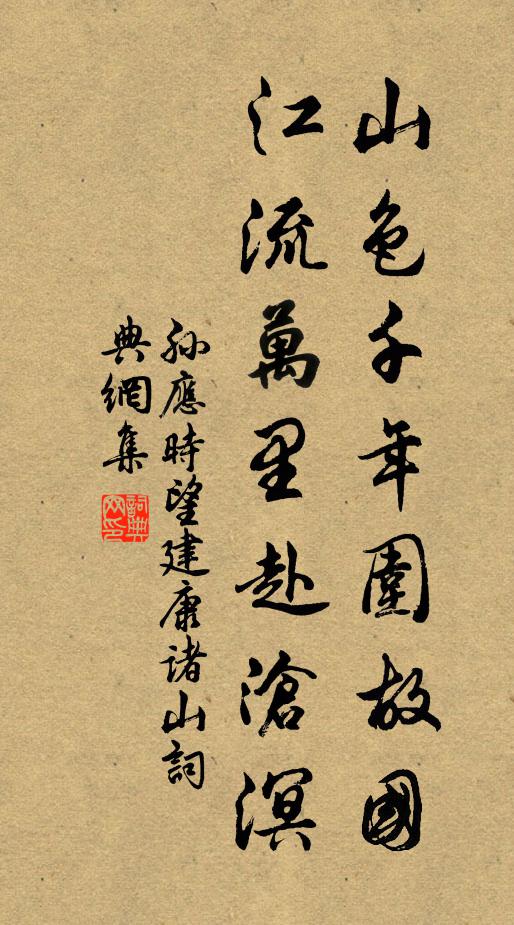 山色千年圍故國
江流萬里赴滄溟
孙應時望建康诸山詞
典網集
詞典
网印